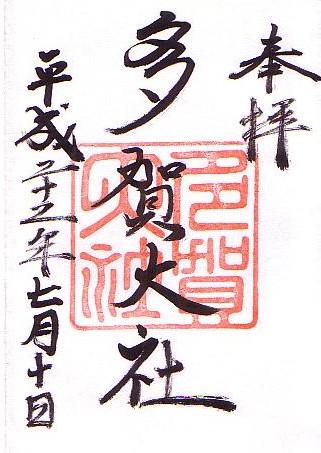 奉拝
多賀大社
平成二十五年七月十日
多賀
大社